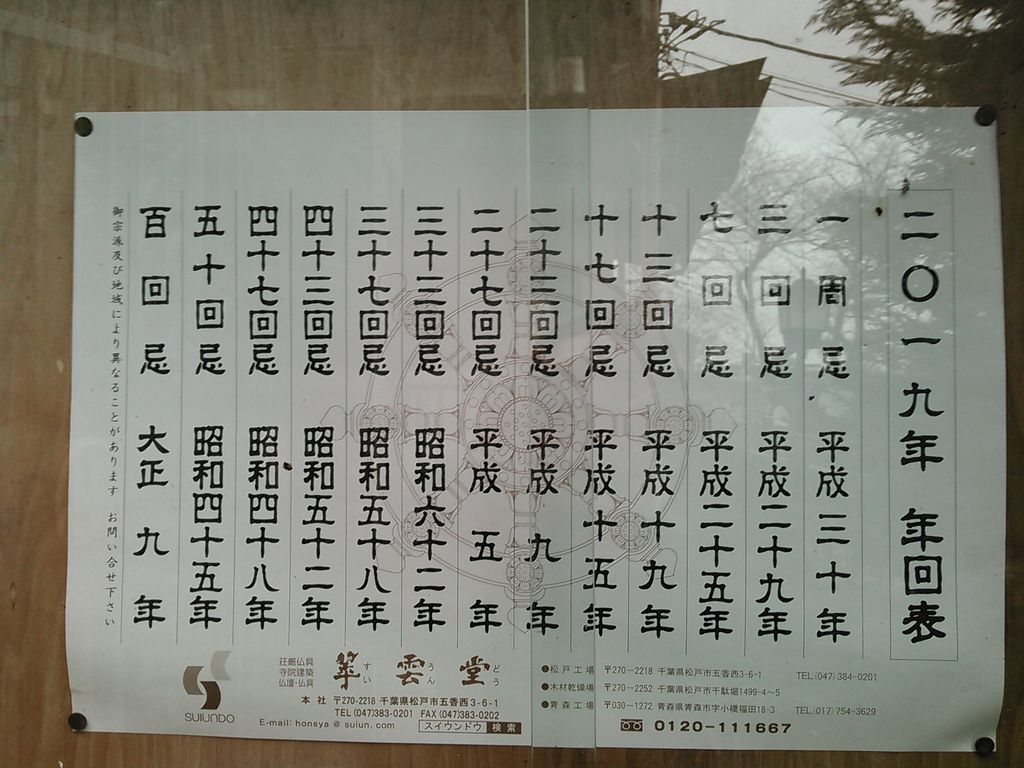 二〇一九年 年回表
一周忌 平成三十年
三回忌 平成二十九年
七回忌 平成二十五年
十三回忌 平成十九年
十七回忌 平成十五年
二十三回忌 平成九年
二十七回忌 平成五年
三十三回忌 昭和六十二年
三十七回忌 昭和五十八年
四十三回忌 昭和五十二年
四十七回忌 昭和四十八年
五十回忌 昭和四十五年
百回忌 大正九年
御宗派及び地域により異なることがあります お問い合せ下さい
SUIUNDO
荘厳仏具
寺院建築
仏壇・仏具
翠雲堂
すい うん どう
本社 〒270-2218 千葉県松戸市五香西3-6-1
TEL(047)383-0201 FAX(047)383-0202
E-mail: honsya @ suiun. com スイウンドウ 検索
●松戸工場 〒270-2218 千葉県松戸市五香西3-6-1 TEL(047)384-0201
●木材乾燥場 〒270-2252 千葉県松戸市千駄堀1499-4~5
●青森工場 〒030-1272 青森県青森市字小橋福田18-3 TEL(017)754-3629
0120-111667